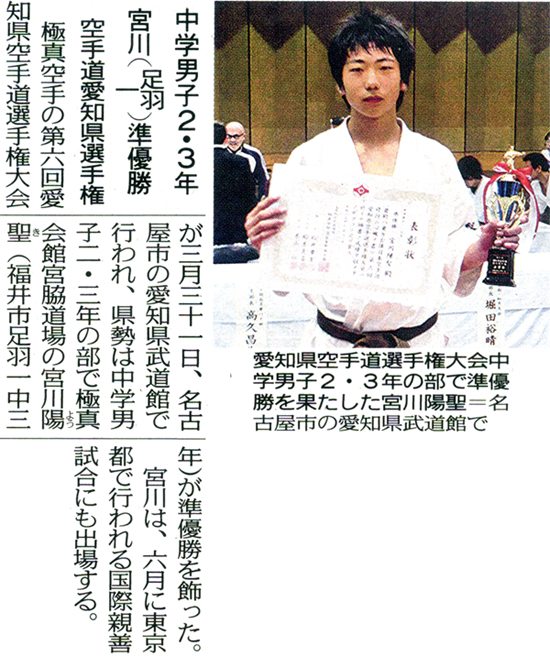 中学男子2・3年
宮川(足羽一)準優勝
空手道愛知県選手権
極真空手の第六回愛
知県空手道選手権大会
が三月三十一日、名古
屋市の愛知県武道館で
行われ、県勢は中学男
子二・三年の部で極真
会館宮脇道場の宮川陽
よう
聖(福井市足羽一中三
き
年)が準優勝を飾った。
宮川は、六月に東京
都で行われる国際親善
試合にも出場する。
表彰状
堀田裕晴
高久昌
愛知県空手道選手権大会中
学男子2・3年の部で準優
勝を果たした宮川陽聖=名
古屋市の愛知県武道館で